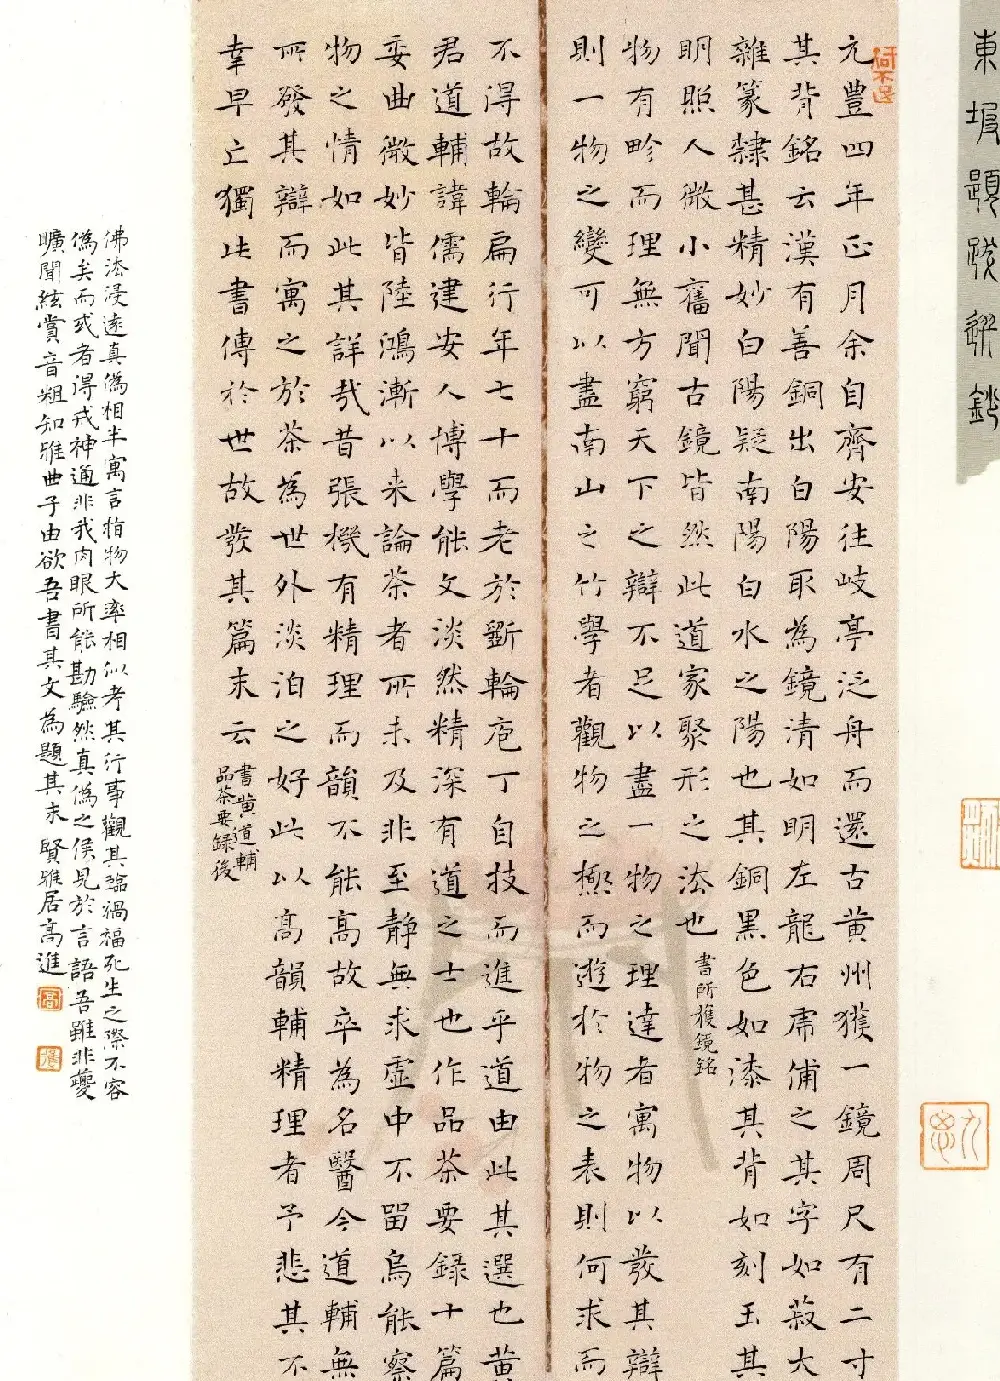 東坡題跋選鈔
何不足
元豊四年正月余自齊安往岐亭泛舟而還古黄州獲一鏡周尺有二寸
其背銘云漢有善銅出白陽取為鏡清如明左龍右虎俌之其字如菽大
雜篆隸甚精妙白陽疑南陽白水之陽也其銅黑色如漆其背如刻玉其
明照人微小舊聞古鏡皆然此道家聚形之法也
書所獲鏡銘
物有畛而理無方窮天下之辯不足以盡一物之理達者寓物以發其辯
則一物之變可以盡南山之竹學者觀物之極而遊於物之表則何求而
不得故輪扁行年七十而老於斲輪庖丁自技而進乎道由此其選也黄
君道輔諱儒建安人博學能文淡然精深有道之士也作品茶要録十篇
委曲微妙皆陸鴻漸以来論茶者所未及非至静無求虚中不留烏能察
物之情如此其詳哉昔張機有精理而韻不能高故卒為名醫今道輔無
所發其辯而寓之於茶為世外淡泊之好此以高韻輔精理者予悲其不
幸早亡獨此書傳於世故發其篇末云
書黄道輔
品茶要録後
佛法浸遠真偽相半寓言指物大率相似考其行事觀其臨禍福死生之際不容
偽矣而或者得戒神通非我肉眼所能勘驗然真偽之候見於言語吾雖非夔
曠聞絃賞音粗知雅曲子由欲吾書其文為題其末 賢雅居高進